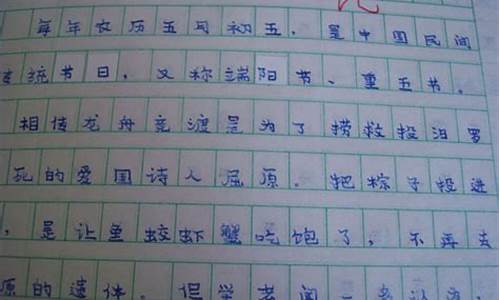 每年农历五月初五，是中国民间
传统节日，又称端阳节、重五节。
相传龙舟竞渡是为了捞救投汨罗
死的爱国诗人屈原。把粽子投进
，是让鱼蛟虾蟹吃饱了，不再去
原的遗体。但学者闻一多认为